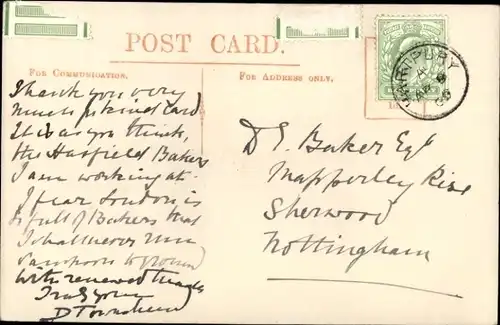 POST CARD.
FOR COMMUNICATION.
FOR ADDRESS ONLY.
HARTPURY
AP
09
I thank you very
much for kind card
It is as you think,
the Hasfield Bakers
I am working at.
I fear London is
so full of Bakers that
I shall never run
to ground
With renewed thanks
Truly yours
D Townshend
D. E. Baker Esq
Mapperley Rise
Sherwood
Nottingham